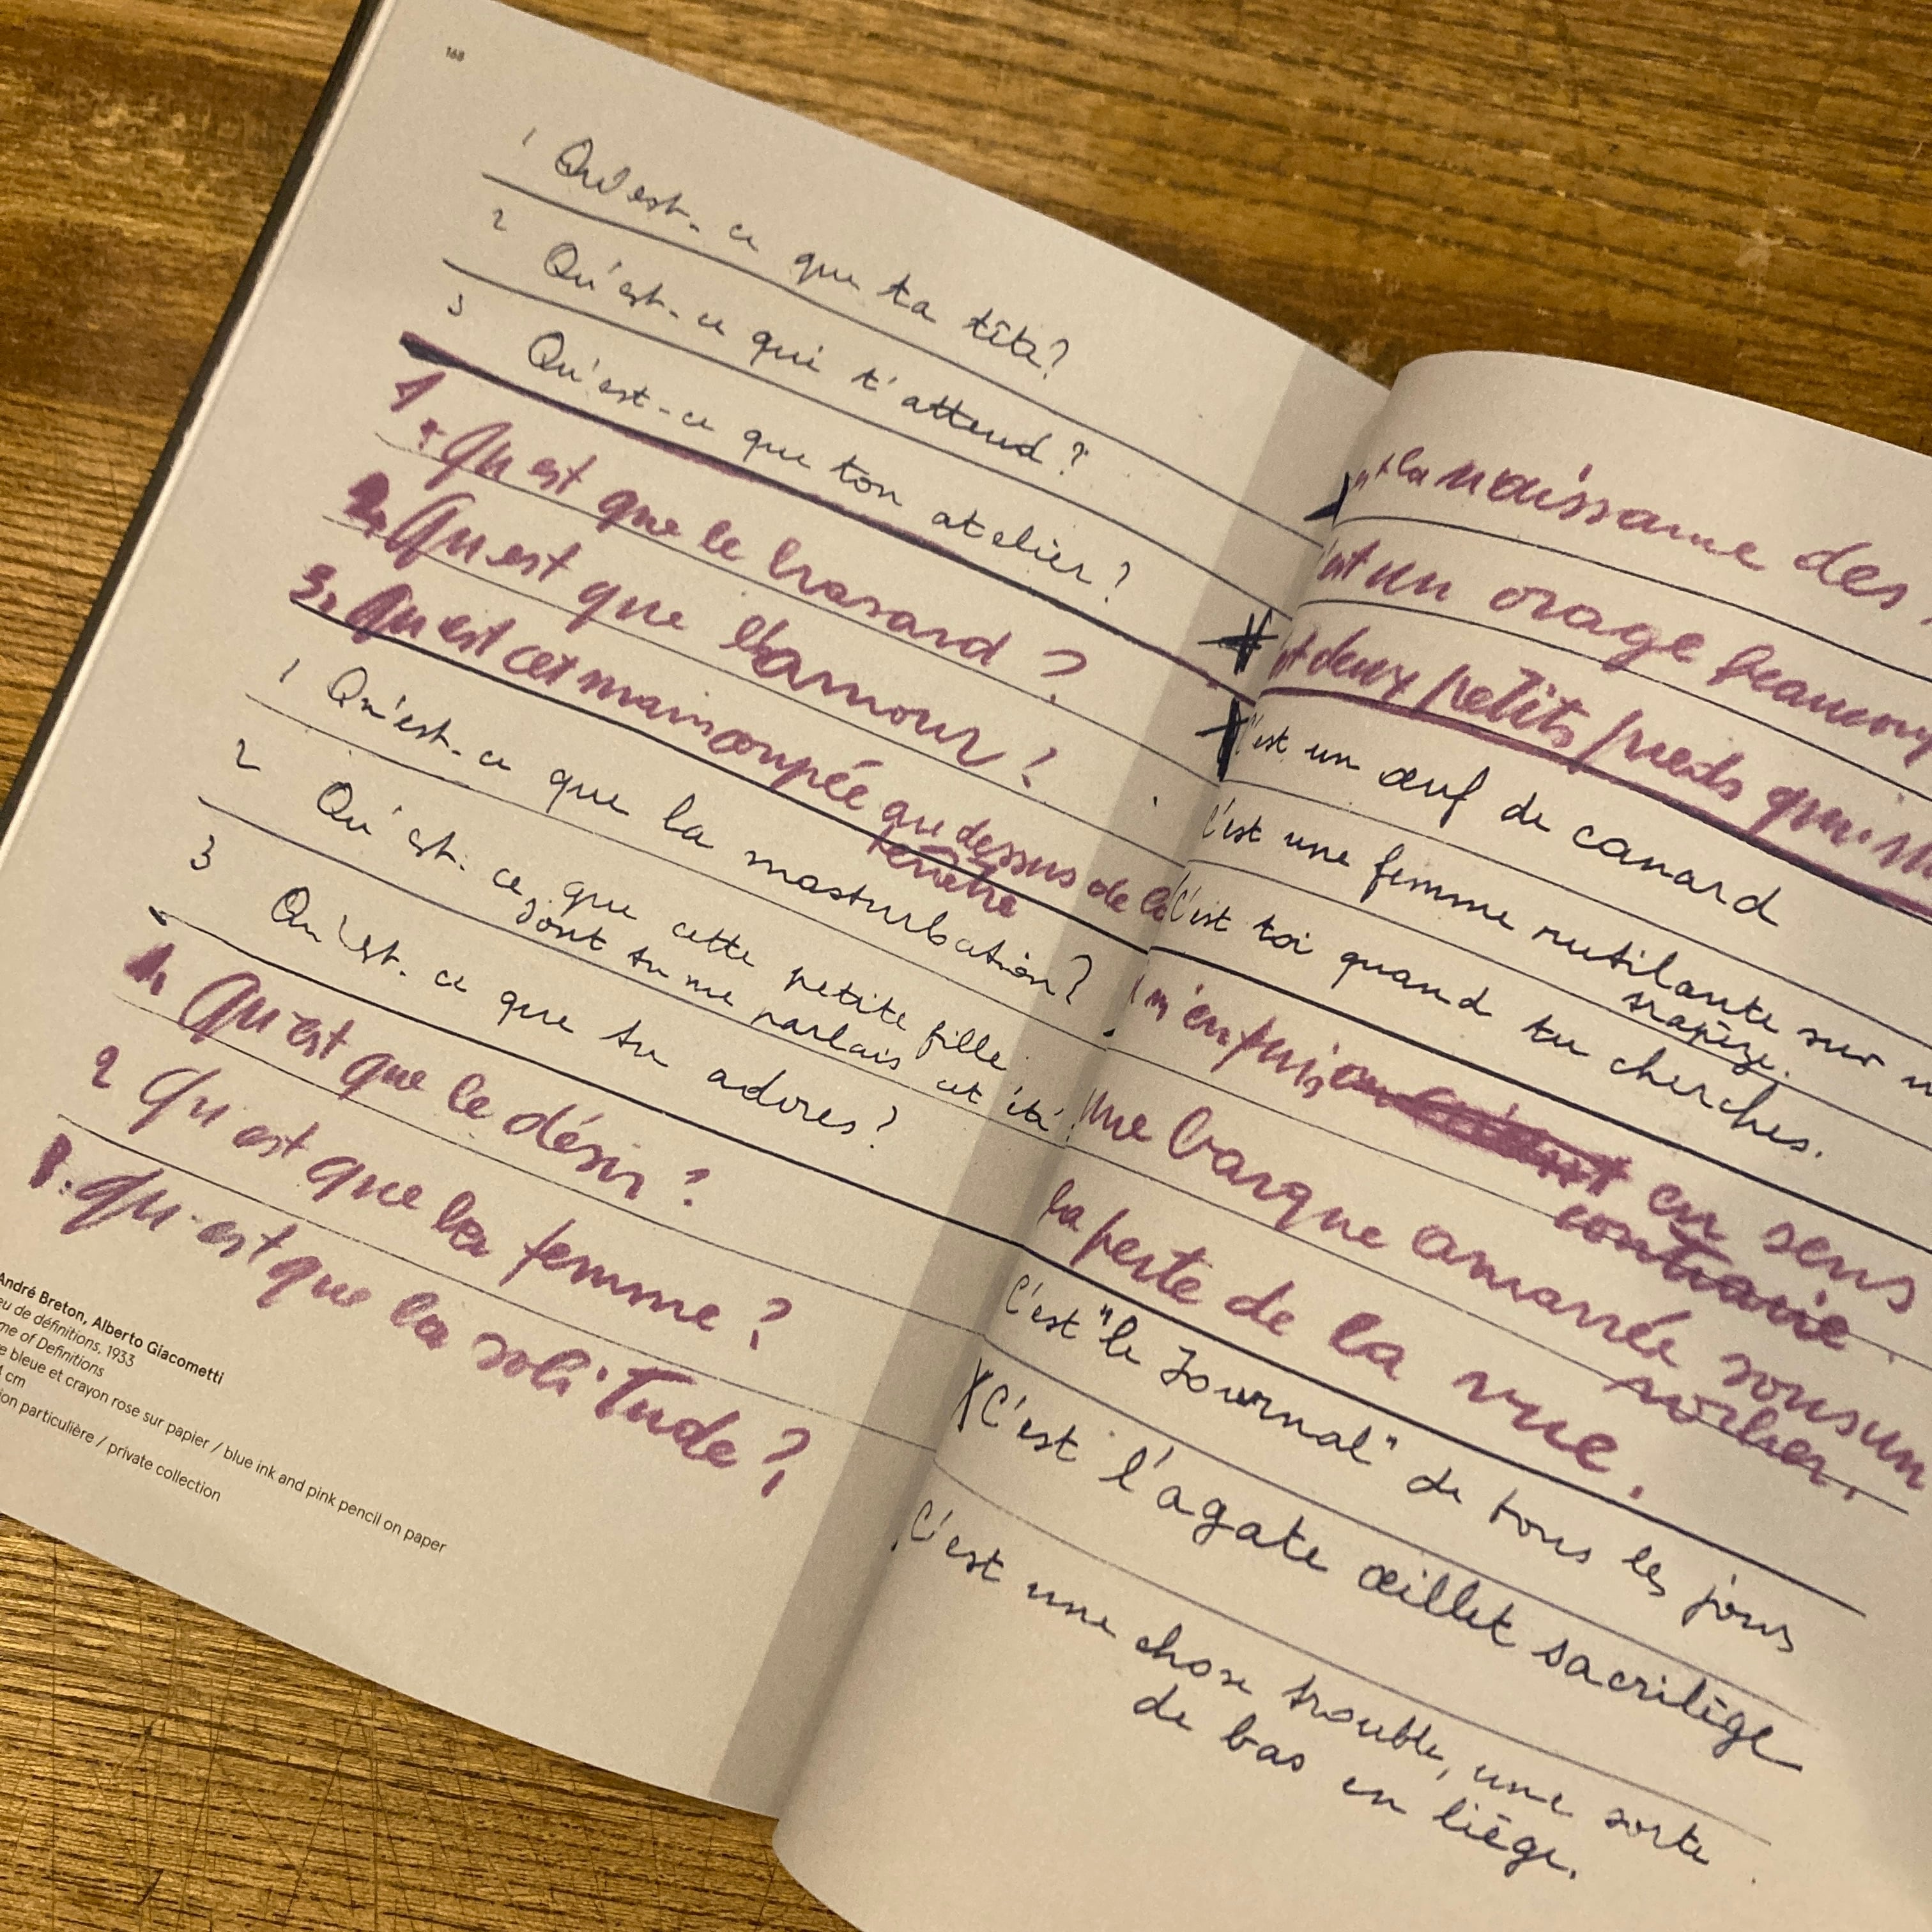 168
1 Qu'est-ce que ta tête?
2 Qu'est-ce qui t'attend?
3 Qu'est-ce que ton atelier?
1. Qu est que le hasard ?
2. Qu est que l'amour ?
3. Qu est cet main coupée au dessus de la
fenêtre
1 Qu'est-ce que la masturbation?
2 Qu'est-ce que cette petite fille
dont tu me parlais cet été?
3 Qu'est-ce que tu adores?
1. Qu est que le désir ?
2 Qu est que la femme ?
3. Qu est que la solitude ?
André Breton, Alberto Giacometti
eu de définitions, 1933
me of Definitions
e bleue et crayon rose sur papier / blue ink and pink pencil on paper
cm
ion particulière / private collection
la naissance des
est un orage beaucoup
deux petits pieds qui
C'est un œuf de canard
C'est une femme rutilante sur
trapèze.
C'est toi quand tu cherches.
en sens
contraire.
Une barque amarrée sous un
La perte de la vue.
C'est "le Journal" de tous les jours
C'est l'agate œillet sacrilège
C'est une chose trouble, une sorte
de bas en liège.